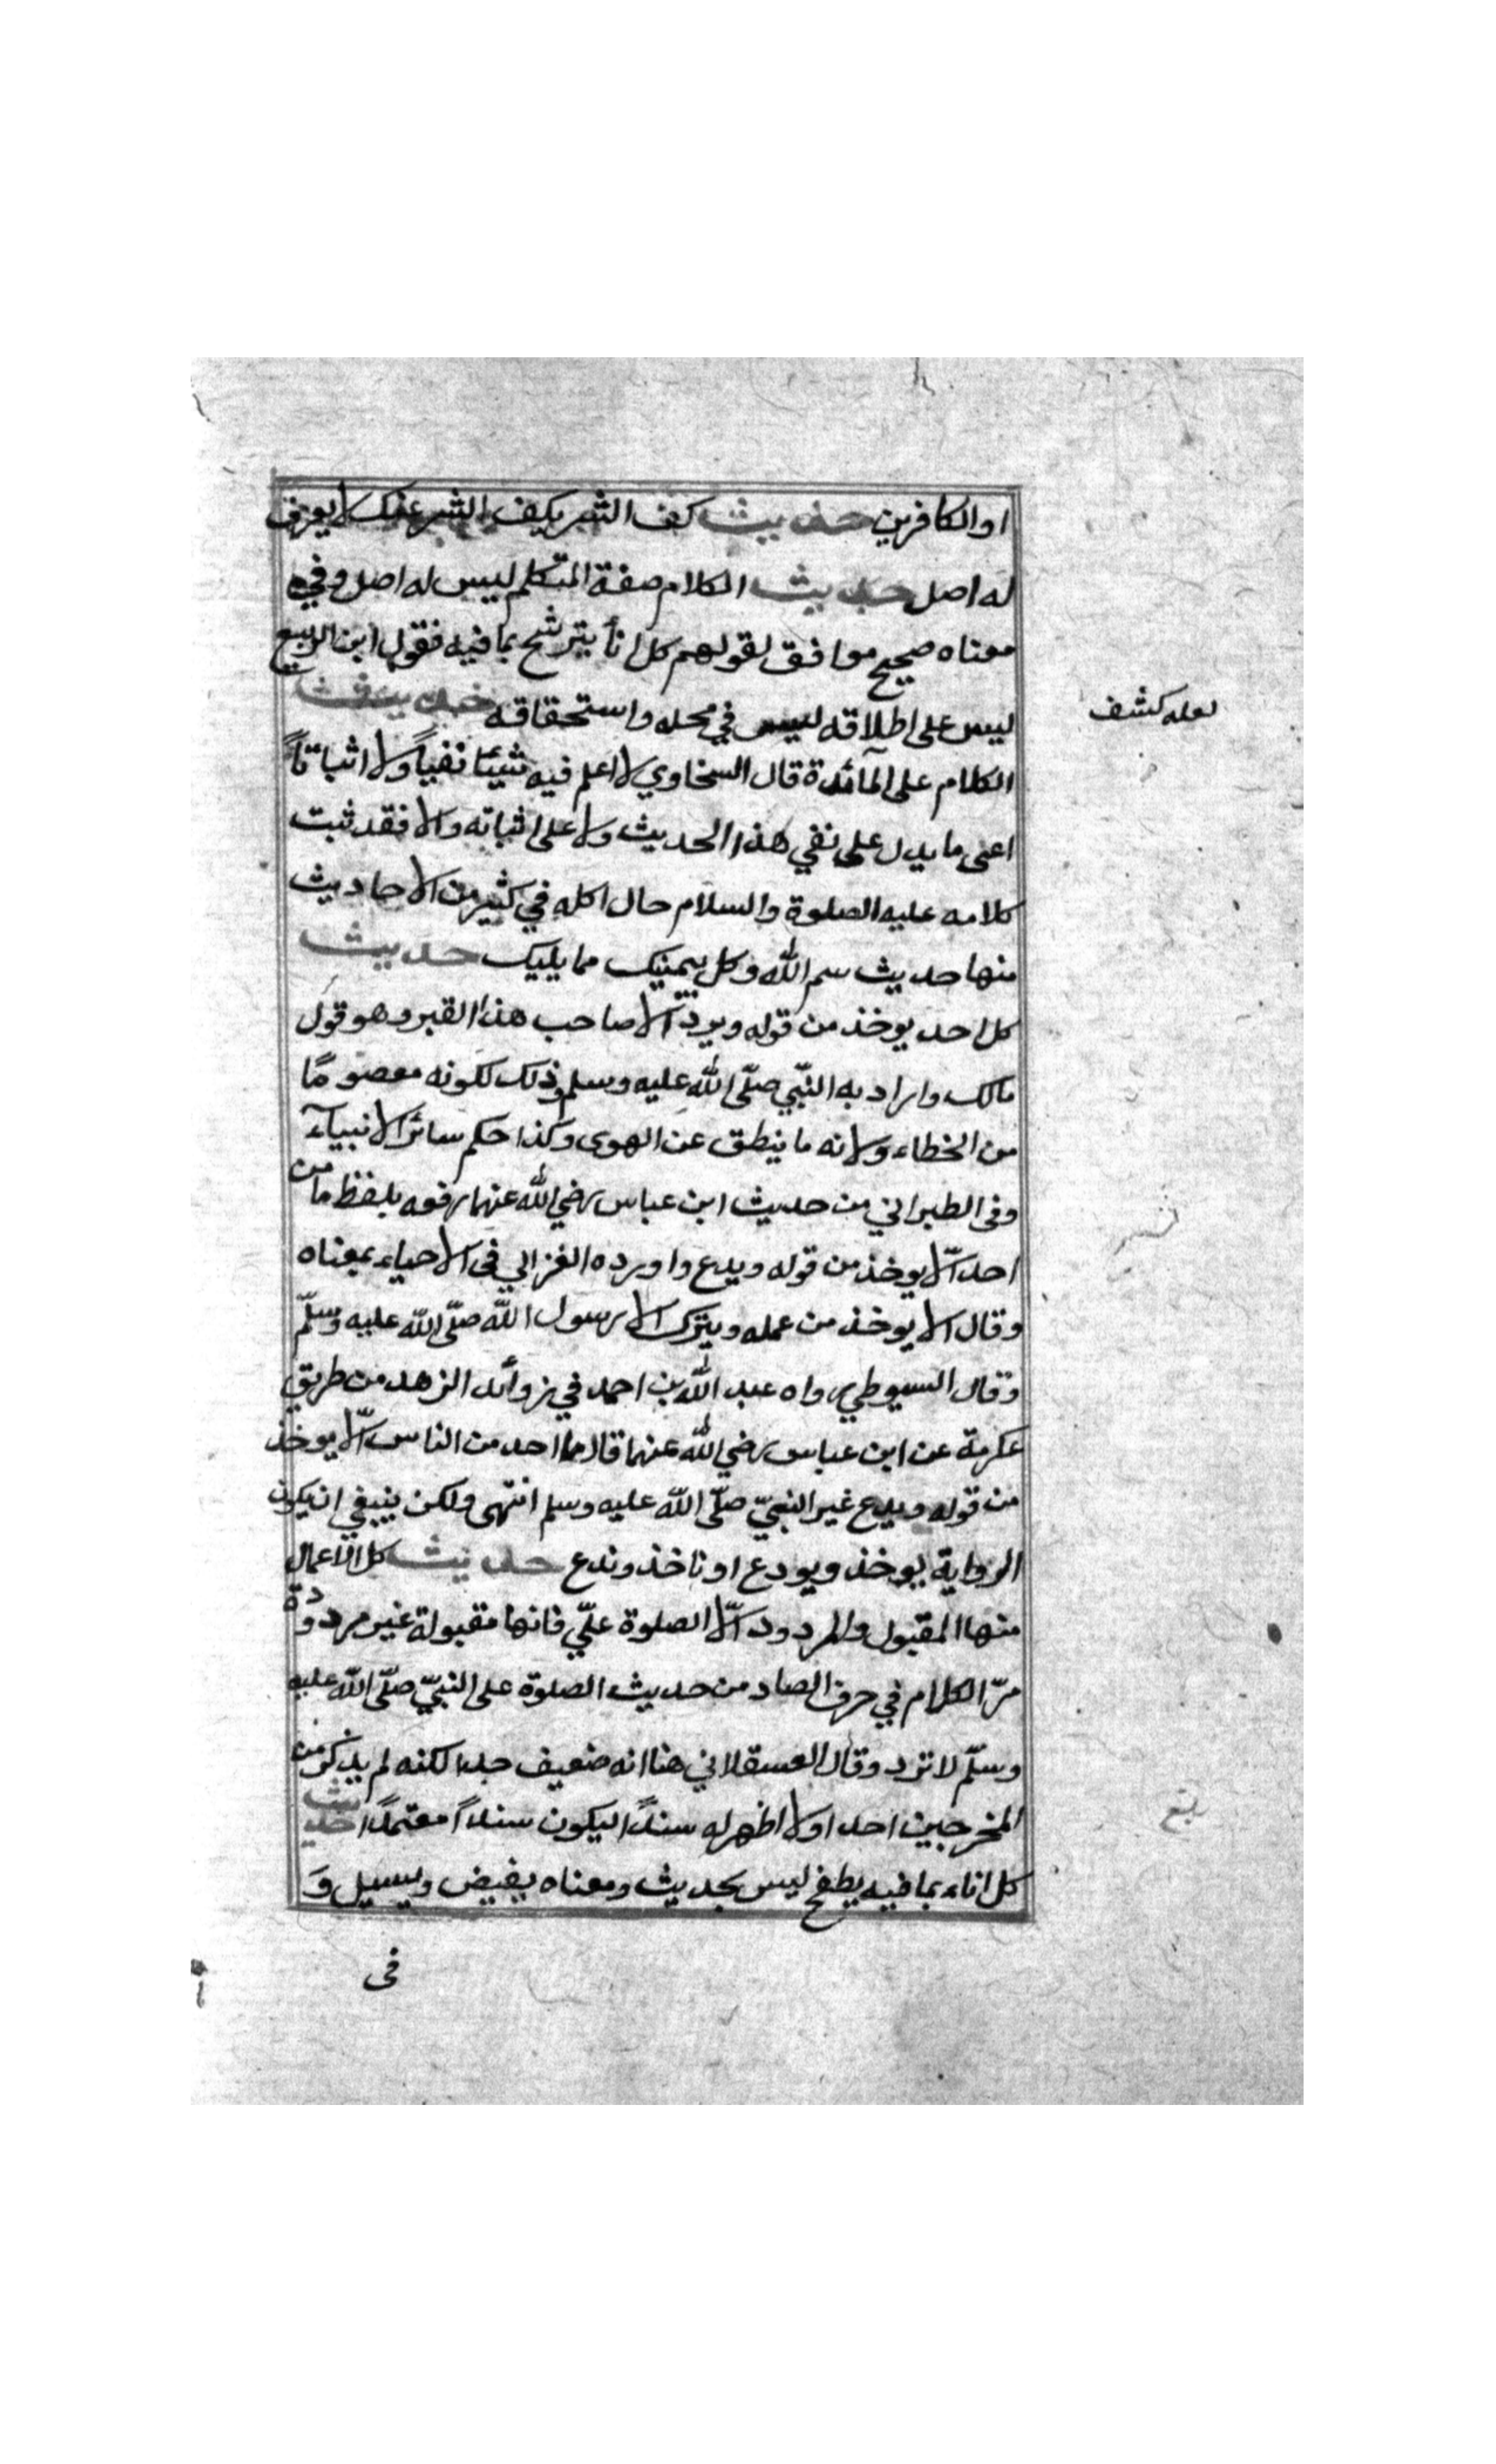 او الكافرين حديث كف الشر يكف الشر عنك لا يعرف
له اصل حديث الكلام صفة المتكلم ليس له اصل وفي
معناه صحيح موافق لقولهم كل انأ يترشح بما فيه فقول ابن الربيع
ليس على اطلاقه ليس في محله واستحقاقه حديث
الكلام على المآئدة قال السخاوي لا اعلم فيه شيئا نفياً ولا اثباتاً
اعنى ما يدل على نفي هذا الحديث ولا على اثباته والا فقد ثبت
كلامه عليه الصلوة والسلام حال اكله في كثير من الاحاديث
منها حديث سم الله وكل بيمينك مما يليك حديث
كل احد يوخذ من قوله ويردّ الا صاحب هذا القبر وهو قول
مالك واراد به النّبي صلّى الله عليه وسلم وذلك لكونه معصومًا
من الخطاء ولانه ما ينطق عن الهوى وكذا حكم سائر الانبيآء
وفى الطبراني من حديث ابن عباس رضي الله عنهما رفعه بلفظ ما من
احد الّا يوخذ من قوله ويدع واورده الغزالي فى الاحياء بمعناه
وقال الا يوخذ من عمله ويترك الا رسول الله صلّى الله عليه وسلّم
وقال السيوطي رواه عبد الله بن احمد في زوائد الزهد من طريق
عكرمة عن ابن عباس رضي الله عنهما قال ما احد من الناس الّا يوخذ
من قوله ويدع غير النّبيّ صلّى الله عليه وسلم انتهى ولكن ينبغي ان يكون
الرواية يوخذ ويودع او ناخذ وندع حديث كل الاعمال
منها المقبول والمردود الّا الصلوة علّي فانها مقبولة غير مردودة
مرّ الكلام في حرف الصاد من حديث الصلوة على النبيّ صلّى الله عليه
وسلّم لا ترد وقال العسقلاني هنا انه ضعيف جدا لكنه لم يذكر من
المخرجين احدا ولا اظهر له سنداً ليكون سنداً معتمداً حديث
كل اناء بما فيه يطفح ليس بحديث ومعناه يفيض ويسيل وَ
فى
لعله كشف